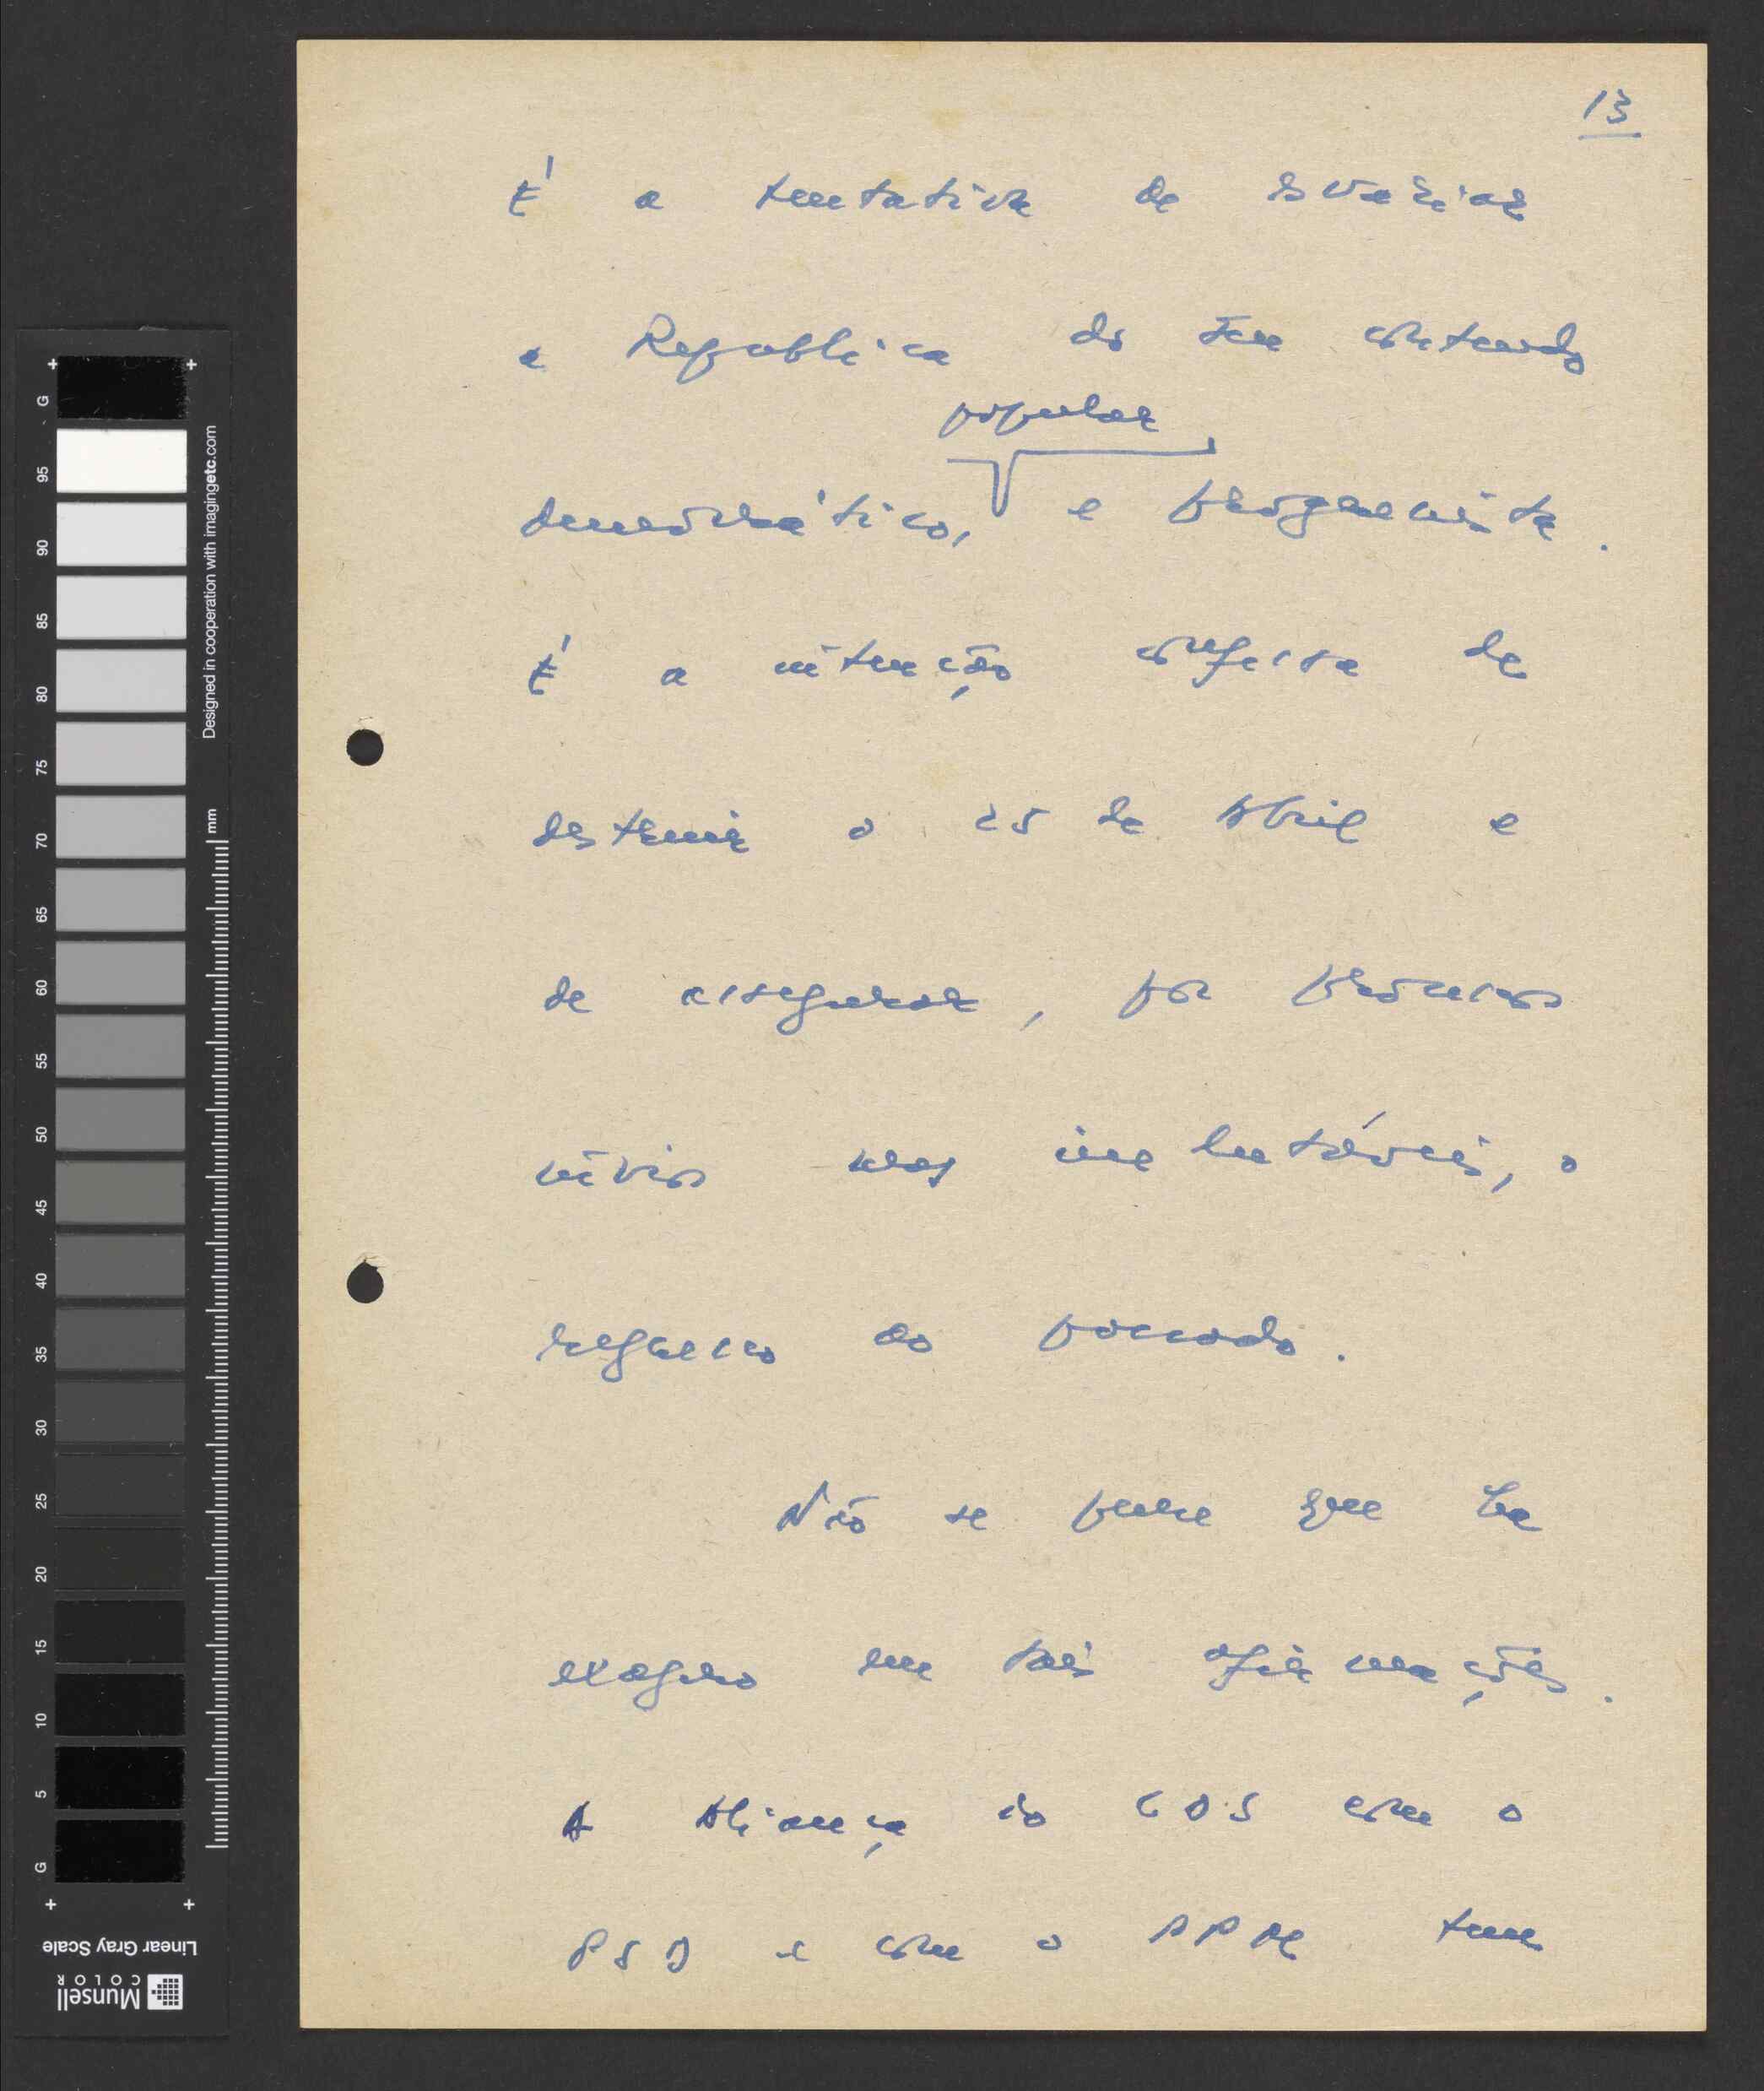 13
É a tentativa de esvaziar
a Republica do seu conteudo
popular
democrático, e progressista.
É a intenção confessa de
destruir o 25 de Abril e
de assegurar, por processos
ínvios mas imbatíveis, o
regresso ao passado.
Não se pense que há
exagero em tais afirmações.
A Aliança do CDS com o
PSD e com o PPM tem
G 95 90 85 80 75 70 65 60 55 50 45 40 35 30 25 20 15 10 5 G
Designed in cooperation with imagingetc.com
mm
Munsell
COLOR
Linear Gray Scale